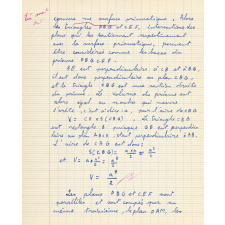 comme une surface prismatique. Alors
les triangles DBG et CEF, intersections des
plans qui les contiennent respectivement
avec la surface prismatique, peuvent
être considérés comme les bases du
prisme DBG CEF.
GE est perpendiculaire à CB et à BG
il est donc perpendiculaire au plan CBG,
et le triangle CBG est une section droite
du prisme. Le volume du prisme est
alors égal au nombre qui mesure
l'arête, c'est à dire a, par l'aire de CBG
V = CE × S(CBG). Le triangle CBG
est rectangle B puisque GB est perpendicu-
laire au plan ABCD étant perpendiculaire à AB.
L'aire de CBG est donc :
S(CBG) = a×a/2 = a²/2
et V = a × a²/2 = a³/2
V = a³/2
Les plans DBG et CEF sont
parallèles et sont coupés par un
même troisième, le plan DAM, les